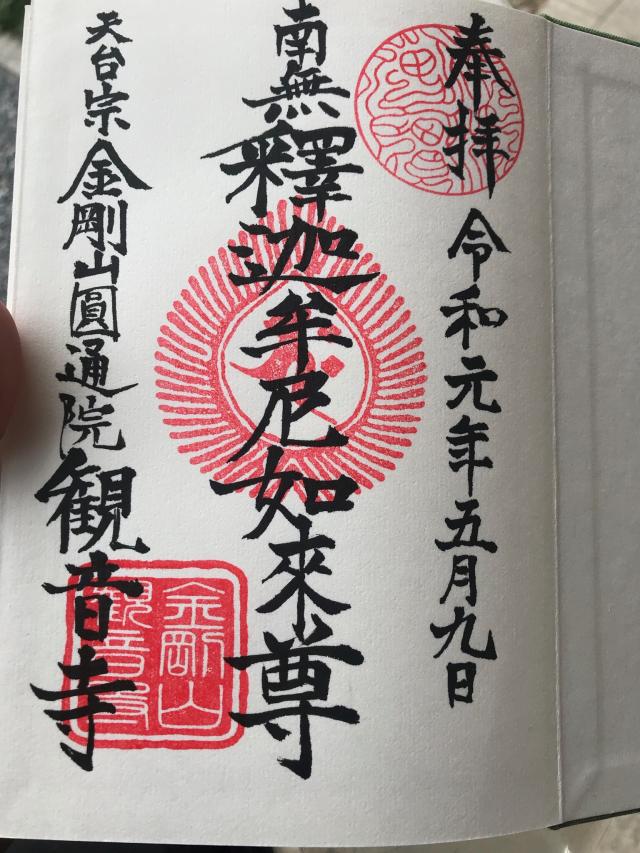 奉拝 令和元年五月九日
南無釋迦牟尼如來尊
天台宗 金剛山圓通院 観音寺
金剛山
観音寺